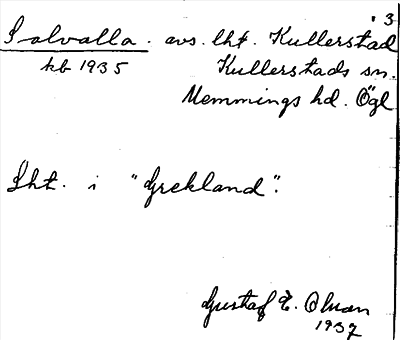 3
Salvalla. avs. lht. Kullerstad
kb 1935 Kullerstads sn.
Memmings hd. Ögl
Lht. i "Grekland".
Gustaf E. Olson
1937